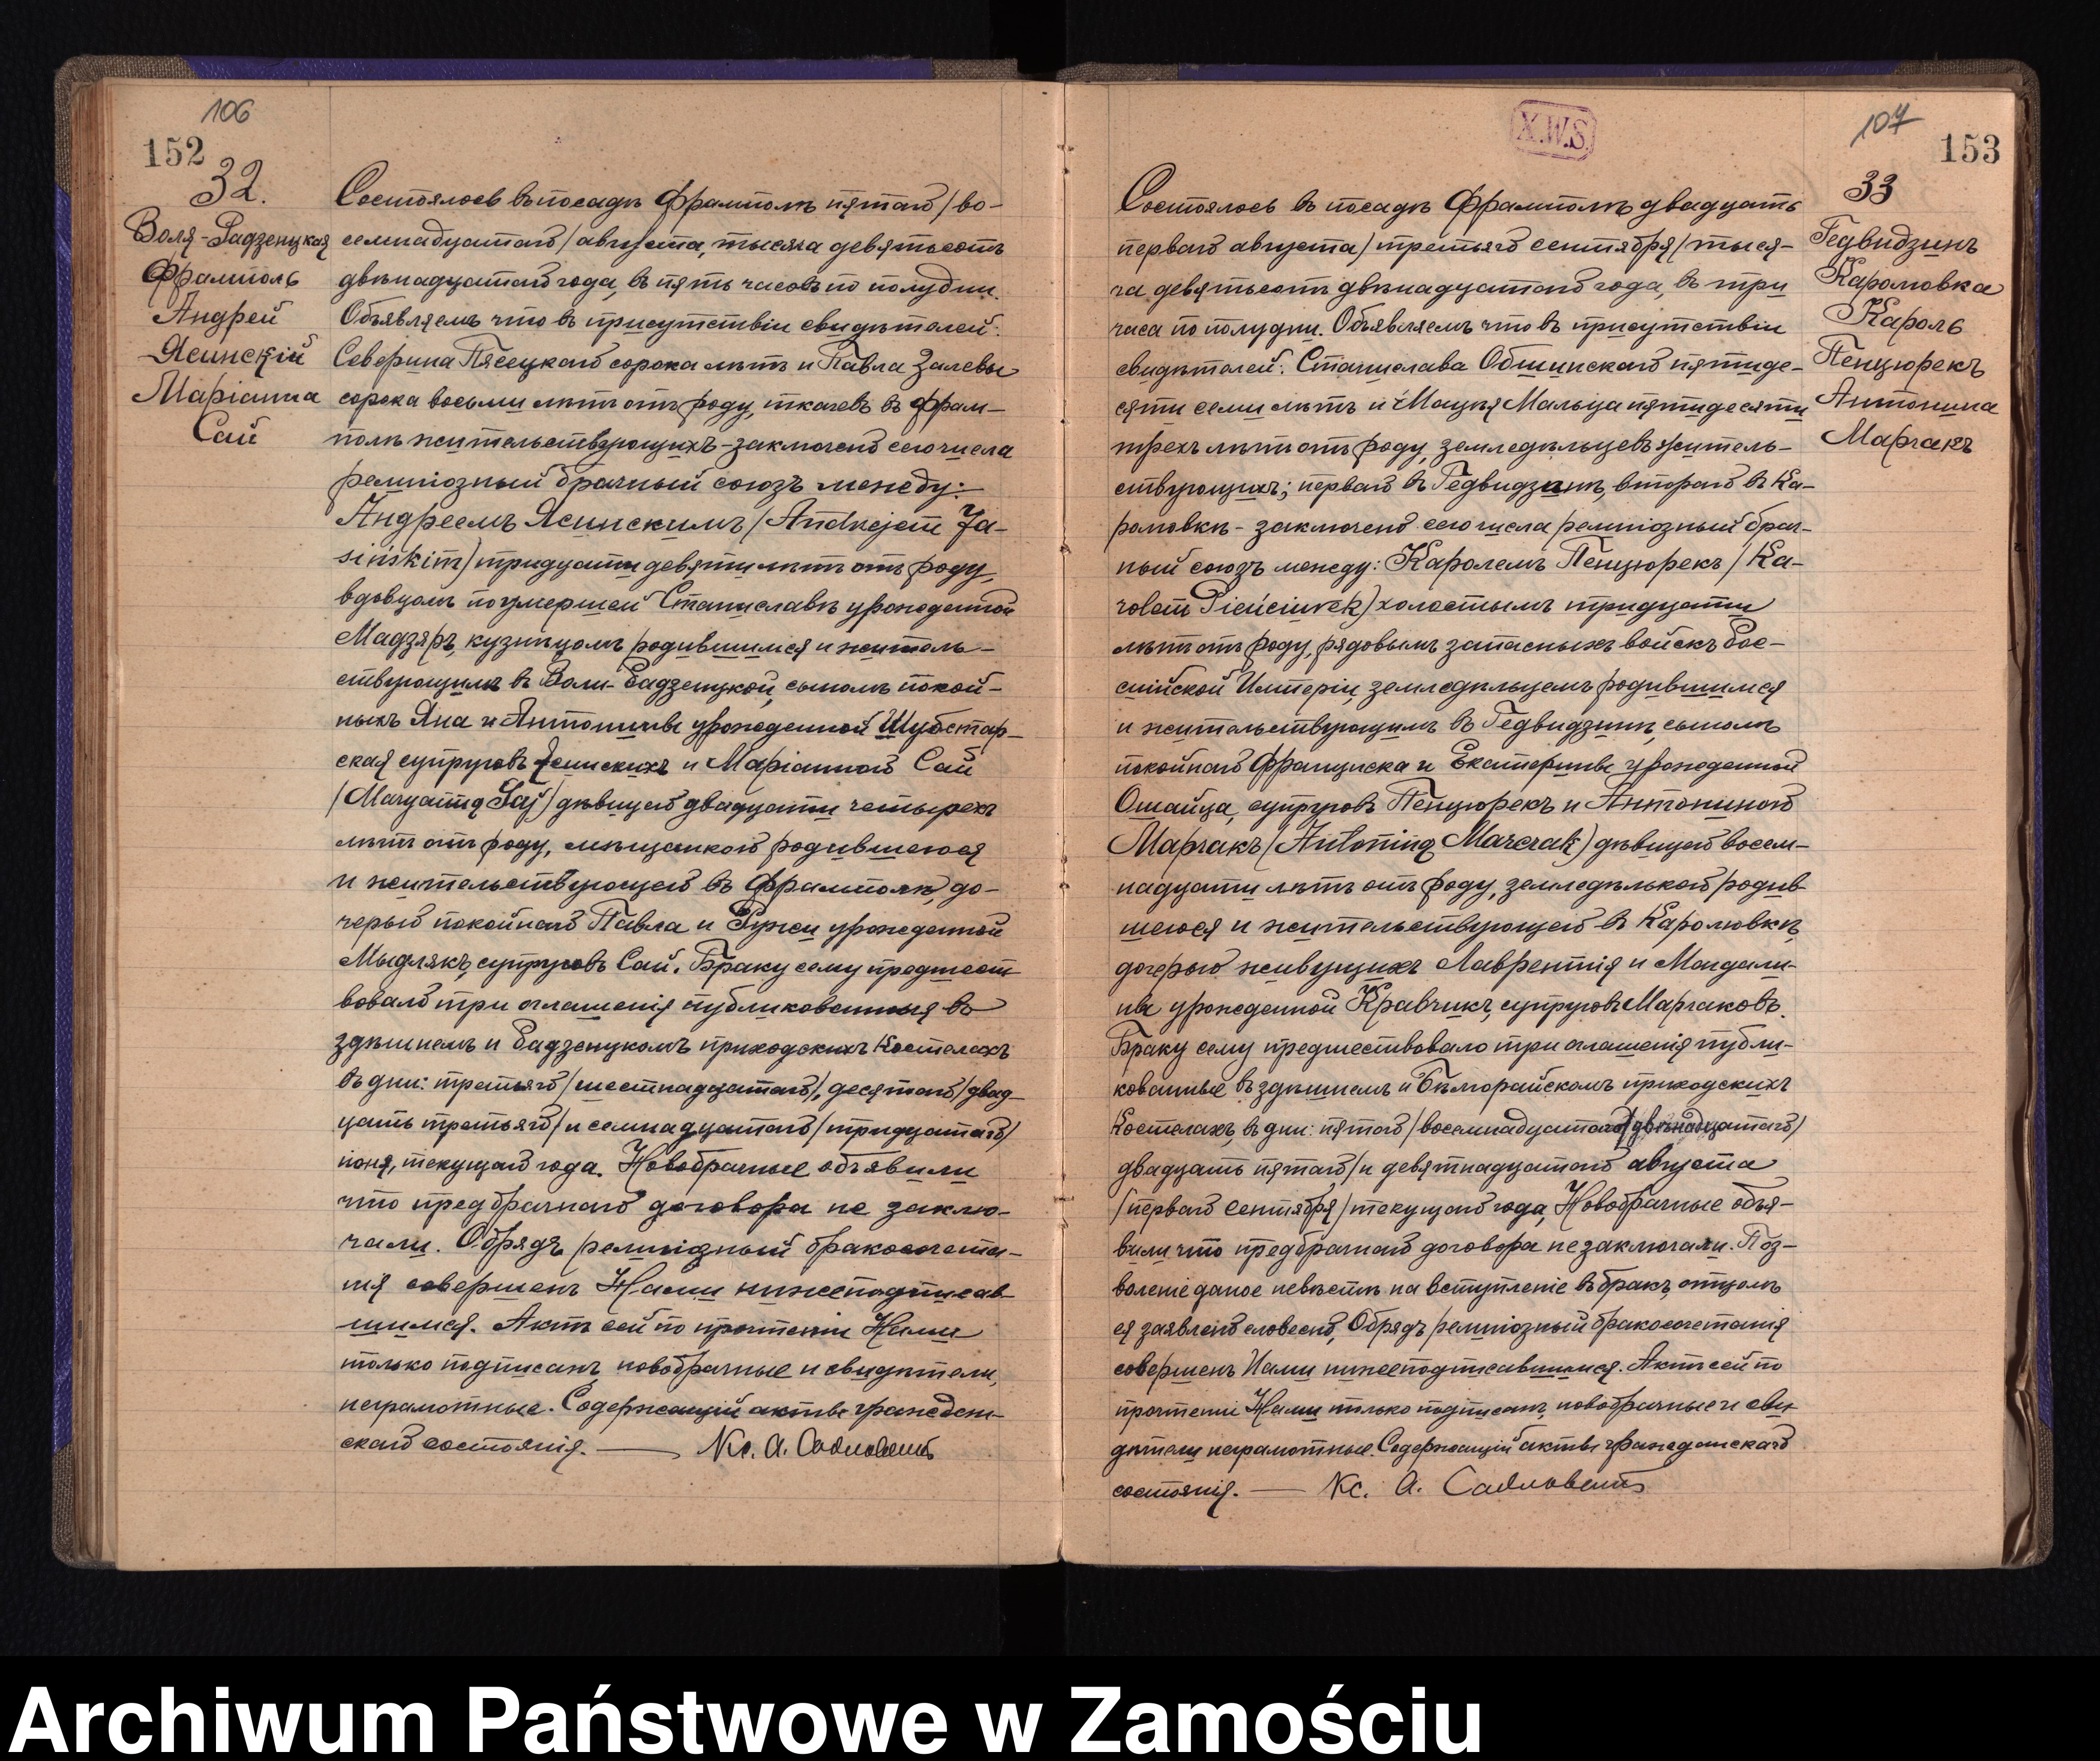 106
152
32.
Воля-Радзенцкая
Фрамполь
Андрей
Ясинскій
Маріанна
Сай
Состоялось въ посадѣ Фрамполѣ пятаго /во-
семнадцатаго/ августа, тысяча девятьсотъ
двѣнадцатаго года, въ пять часовъ по полудни.
Объявляемъ что въ присутствіи свидѣтелей:
Северина Пясецкаго сорока лѣтъ и Павла Залевы
сорока восьми лѣтъ отъ роду, ткачевъ въ Фрам-
полѣ жительствующихъ - заключенъ сего числа
религіозный брачный союзъ между:
Андреемъ Ясинскимъ /Andrzejem Ja-
sińskim/ тридцати девяти лѣтъ отъ роду,
вдовцомъ по умершей Станиславѣ урожденной
Мадзяръ, кузнецомъ родившимся и житель-
ствующимъ въ Воли-Радзенцкой, сыномъ покой-
ныхъ Яна и Антонины урожденной Шубстар-
ская супруговъ Ясинскихъ и Маріанною Сай
/Maryanną Saj/ дѣвицею двадцати четырехъ
лѣтъ отъ роду, мѣщанкою родившеюся
и жительствующею въ Фрамполѣ, до-
черью покойнаго Павла и Ружи урожденной
Мыдлякъ, супруговъ Сай. Браку сему предшест-
вовало три оглашенія публикованныя въ
здѣшнемъ и Радзенцкомъ приходскихъ Костелахъ
въ дни: третьяго /шестнадцатаго/, десятаго /двад-
цать третьяго/ и семнадцатаго /тридцатаго/
іюня, текущаго года. Новобрачные объявили
что предбрачнаго договора не заклю-
чали. Обрядъ религіозный бракосочета-
нія совершенъ Нами нижеподписав-
шимся. Актъ сей по прочтеніи Нами
только подписанъ, новобрачные и свидѣтели,
неграмотные. Содержащій акты граждан-
скаго состоянія. — Кс. А.
X.W.S.
107
153
33
Гедвидзинъ
Каролювка
Кароль
Пенцюрекъ
Антонина
Марчакъ
Состоялось въ посадѣ Фрамполѣ двадцать
перваго августа /третьяго сентября/ тыся-
ча девятьсотъ двѣнадцатаго года, въ три
часа по полудни. Объявляемъ что въ присутствіи
свидѣтелей: Станислава Обшинскаго пятиде-
сяти семи лѣтъ и Мацѣя Мальца пятидесяти
трехъ лѣтъ отъ роду, земледѣльцевъ житель-
ствующихъ; перваго въ Гедвидзинѣ, втораго въ Ка-
ролювкѣ - заключенъ сего числа религіозный брач-
ный союзъ между: Каролемъ Пенцюрекъ /Ka-
rolem Pieńciurek/ холостымъ тридцати
лѣтъ отъ роду, рядовымъ запасныхъ войскъ Рос-
сійской Имперіи, земледѣльцемъ родившимся
и жительствующимъ въ Гедвидзинѣ, сыномъ
покойнаго Францишка и Екатерины урожденной
Ошайца, супруговъ Пенцюрекъ и Антониною
Марчакъ /Antoniną Marczak/ дѣвицею восем-
надцати лѣтъ отъ роду, земледѣлькою родив-
шеюся и жительствующею въ Каролювкѣ,
дочерью живущихъ Лаврентія и Магдали-
ны урожденной Кравчикъ, супруговъ Марчаковъ.
Браку сему предшествовало три оглашенія публи-
кованные въ здѣшнемъ и Бѣлгорайскомъ приходскихъ
Костелахъ, въ дни: пятаго /восемнадцатаго/ двѣнадцатаго/
двадцать пятаго/ и девятнадцатаго августа
/перваго сентября/ текущаго года, Новобрачные объя-
вили что предбрачнаго договора не заключали. Поз-
воленіе даное невѣстѣ на вступленіе въ бракъ, отцомъ
ея заявлено словесно, Обрядъ религіозный бракосочетанія
совершенъ Нами нижеподписавшимся. Актъ сей по
прочтеніи Нами только подписанъ, новобрачные и сви-
дѣтели неграмотные. Содержащій акты гражданскаго
состоянія. — Кс. А.
Archiwum Państwowe w Zamościu